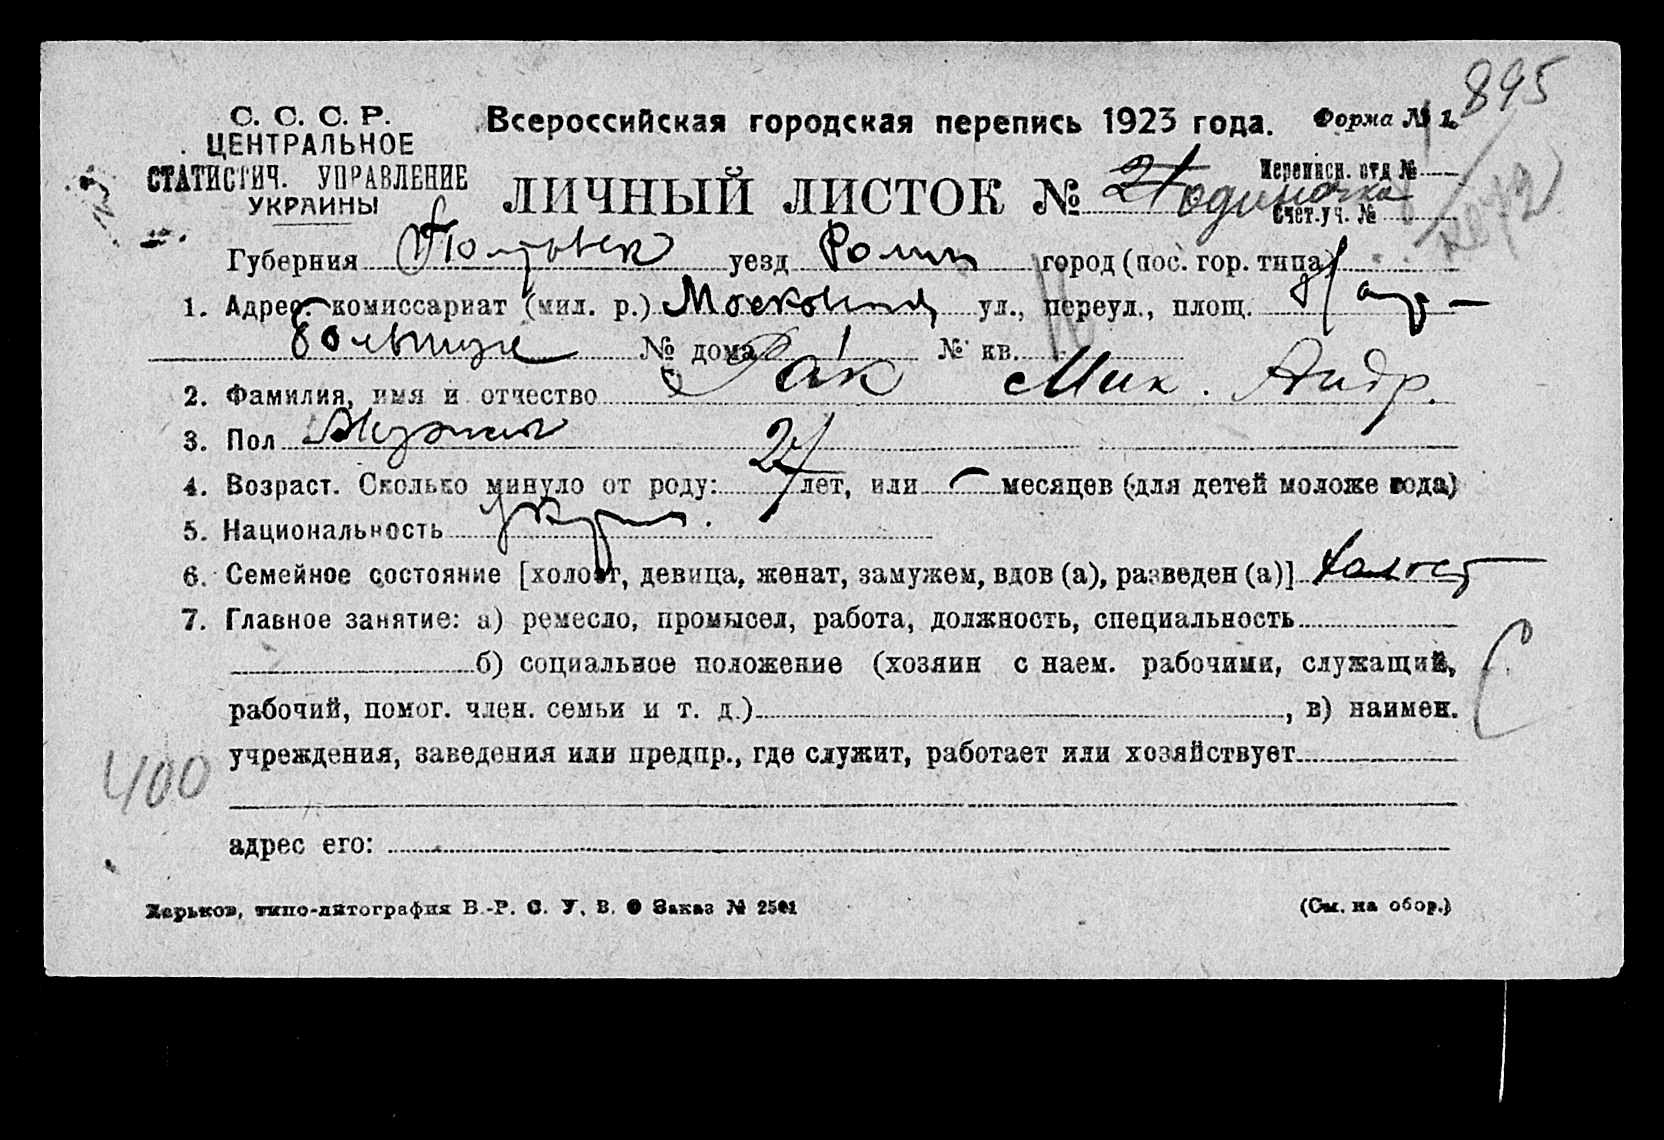 895
С. С. С. Р.
ЦЕНТРАЛЬНОЕ
СТАТИСТИЧ. УПРАВЛЕНИЕ
УКРАИНЫ
Всероссийская городская перепись 1923 года. Форма № 1.
ЛИЧНЫЙ ЛИСТОК № одиночка
Переписн. отд №
Счет.уч. №
Губерния Полтавск уезд Ромн город (пос. гор. типа)
1. Адрес: комиссариат (мил. р.) Московский ул., переул., площ.
больница № дома № кв.
2. Фамилия, имя и отчество Рак Мих. Андр.
3. Пол Мужской
4. Возраст. Сколько минуло от роду: 27 лет, или — месяцев (для детей моложе года)
5. Национальность укр
6. Семейное состояние [холост, девица, женат, замужем, вдов (а), разведен (а)] холост
7. Главное занятие: а) ремесло, промысел, работа, должность, специальность
б) социальное положение (хозяин с наем. рабочими, служащий,
рабочий, помог. член. семьи и т. д.) , в) наимен.
учреждения, заведения или предпр., где служит, работает или хозяйствует
400
адрес его:
Харьков, типо-литография В.-Р. С. У. В. Заказ № 2501
(См. на обор.)